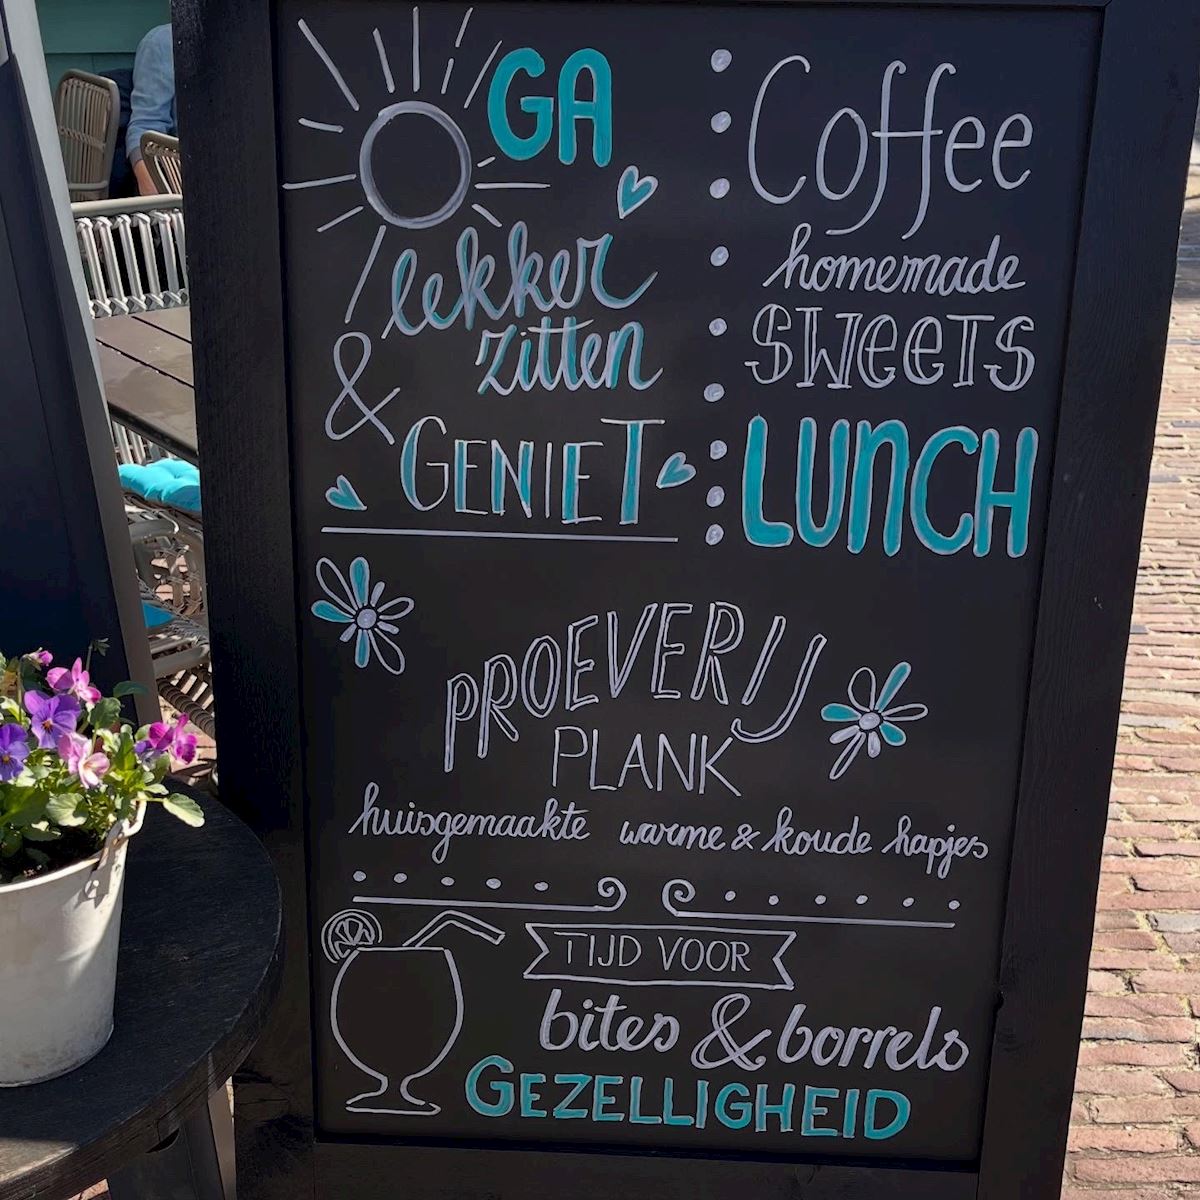 GA
lekker
zitten
& GENIET
Coffee
homemade
SWeeTS
LUNCH
PROEVERIJ
PLANK
huisgemaakte warme & koude hapjes
TIJD VOOR
bites & borrels
GEZELLIGHEID